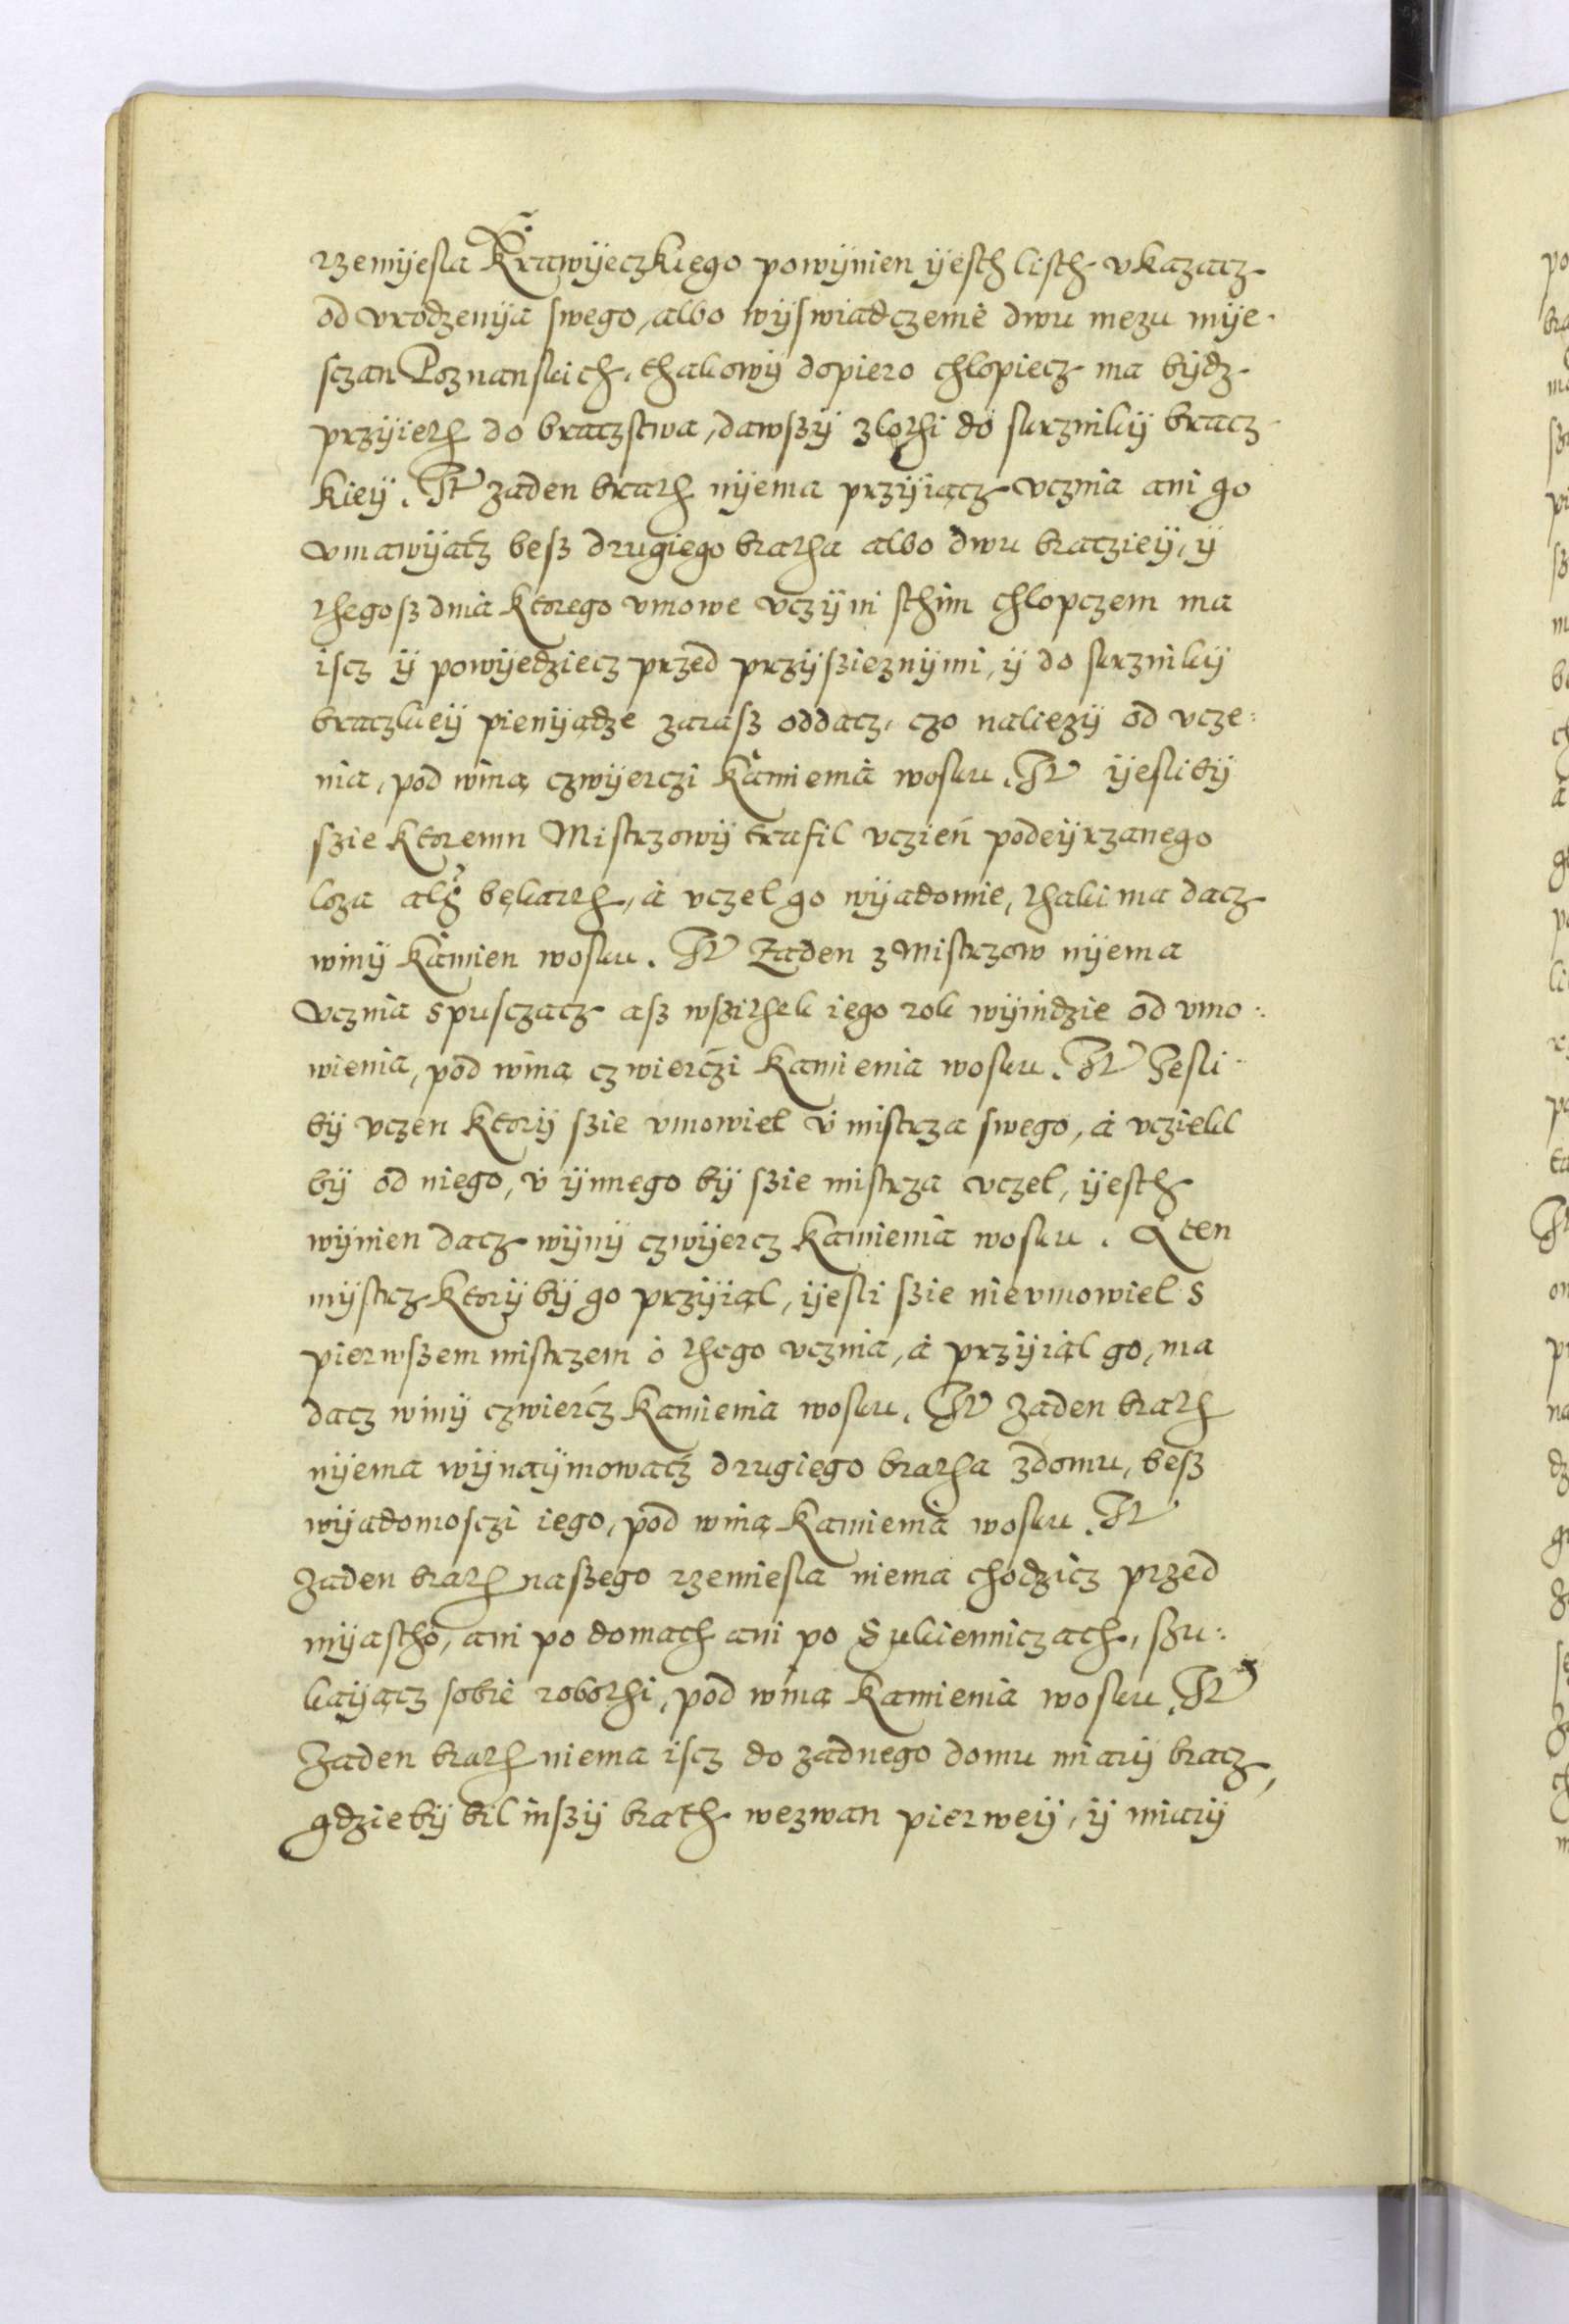 rzemÿesla Krawÿeczkiego powÿnien ÿesth listh vkazacz
od vrodzenÿa swego, albo wÿswiadczenie dwu mezu mÿe-
sczan Poznanskich, thakowÿ dopiero chlopiecz ma bÿdz
przÿieth do braczstwa, dawszÿ zlothi do skrzinkÿ bracz
kieÿ. It zaden brath nÿema przÿiącz vcznia ani go
vmawÿacz besz drugiego bratha albo dwu braczieÿ, ÿ
thegosz dnia ktorego vmowe vczÿni sthim chlopczem ma
iscz ÿ powÿedziecz przed przÿszieznÿmi, ÿ do skrzinkÿ
braczkieÿ pienÿądze zarasz oddacz, czo naliezÿ od vcze:
nia, pod winą czwÿerczi kamienia wosku. It ÿeslibÿ
szie ktoremu Mistrzowÿ trafil vczień podeÿrzanego
loza albo bękarth, a vczel go wÿadomie, thaki ma dacz
winÿ kamien wosku. It Zaden z Mistrzow nÿema
vcznia spusczacz asz wszithek iego rok wÿnidzie od vmo:
wienia, pod winą czwierczi kamienia wosku. It Jesli
bÿ vczen ktorÿ szie vmowiel v mistrza swego, a vciekl
bÿ od niego, v ÿnnego bÿ szie mistrza vczel, ÿesth
wÿnien dacz wÿnÿ czwÿercz kamienia wosku. A ten
mÿstrz ktorÿ bÿ go przÿiąl, ÿesli szie nievmowiel s
pierwszem mistrzem o thego vcznia, a przÿiąl go, ma
dacz winÿ czwiercz kamienia wosku. It zaden brath
nÿema wÿnaÿmowacz drugiego bratha zdomu, besz
wÿadomosczi iego, pod winą kamienia wosku. It
zaden brath naszego rzemiesla niema chodzicz przed
mÿastho, ani po domach ani po Sukienniczach, szu:
kaÿącz sobie robothi, pod winą kamienia wosku. It
Zaden brath niema iscz do zadnego domu miarÿ bracz,
gdziebÿ bil inszÿ brath wezwan pierweÿ, ÿ miarÿ